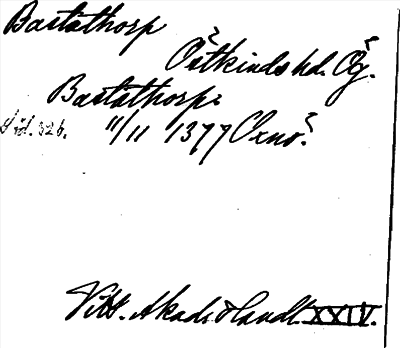 Bastathorp
Östkinds hd. Ög.
Bastathorp:
Sid. 326. 11/11 1377 Öxnö.
Vitt. Akad:s Handl. XXIV.